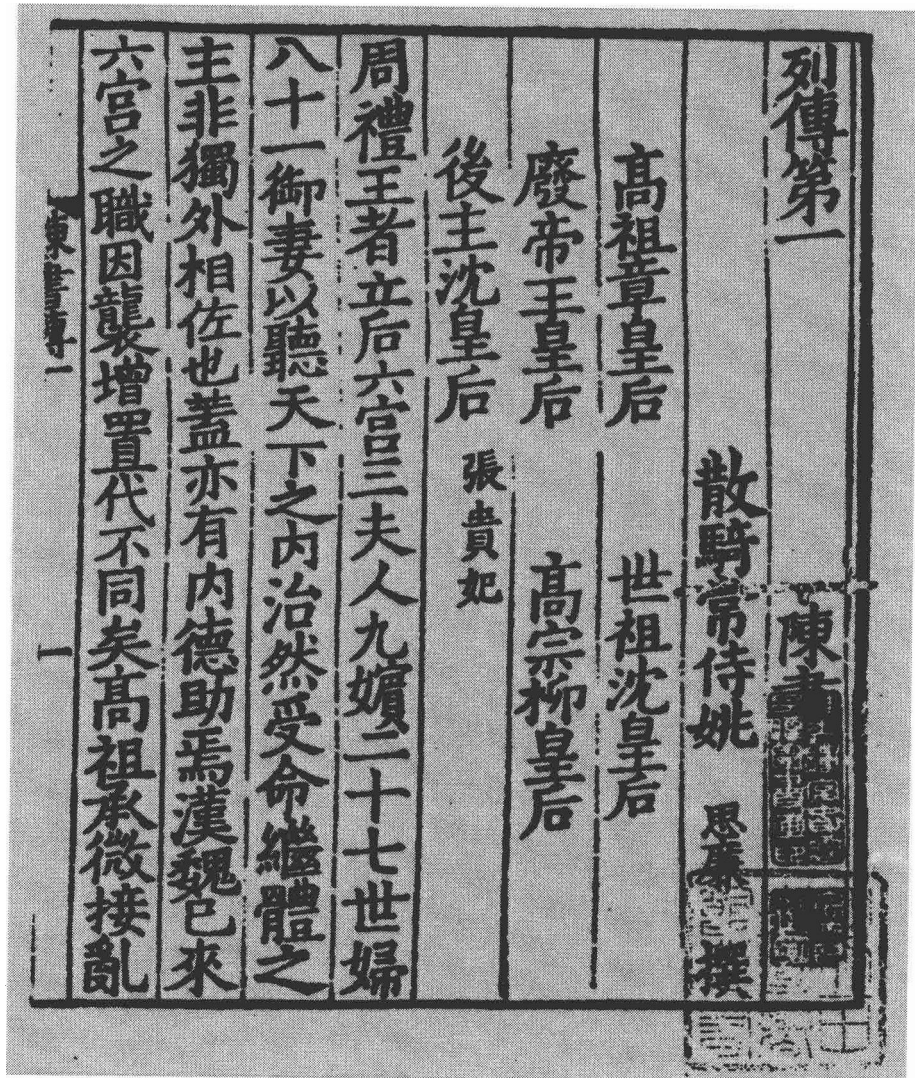 列傳第一 陳書
散騎常侍姚 思廉 撰
高祖章皇后 世祖沈皇后
廢帝王皇后 高宗柳皇后
後主沈皇后 張貴妃
周禮王者立后六宮三夫人九嬪二十七世婦
八十一御妻以聽天下之内治然受命繼體之
主非獨外相佐也蓋亦有内德助焉漢魏已來
六宮之職因襲增置代不同矣高祖承微接亂
陳書傳一 一